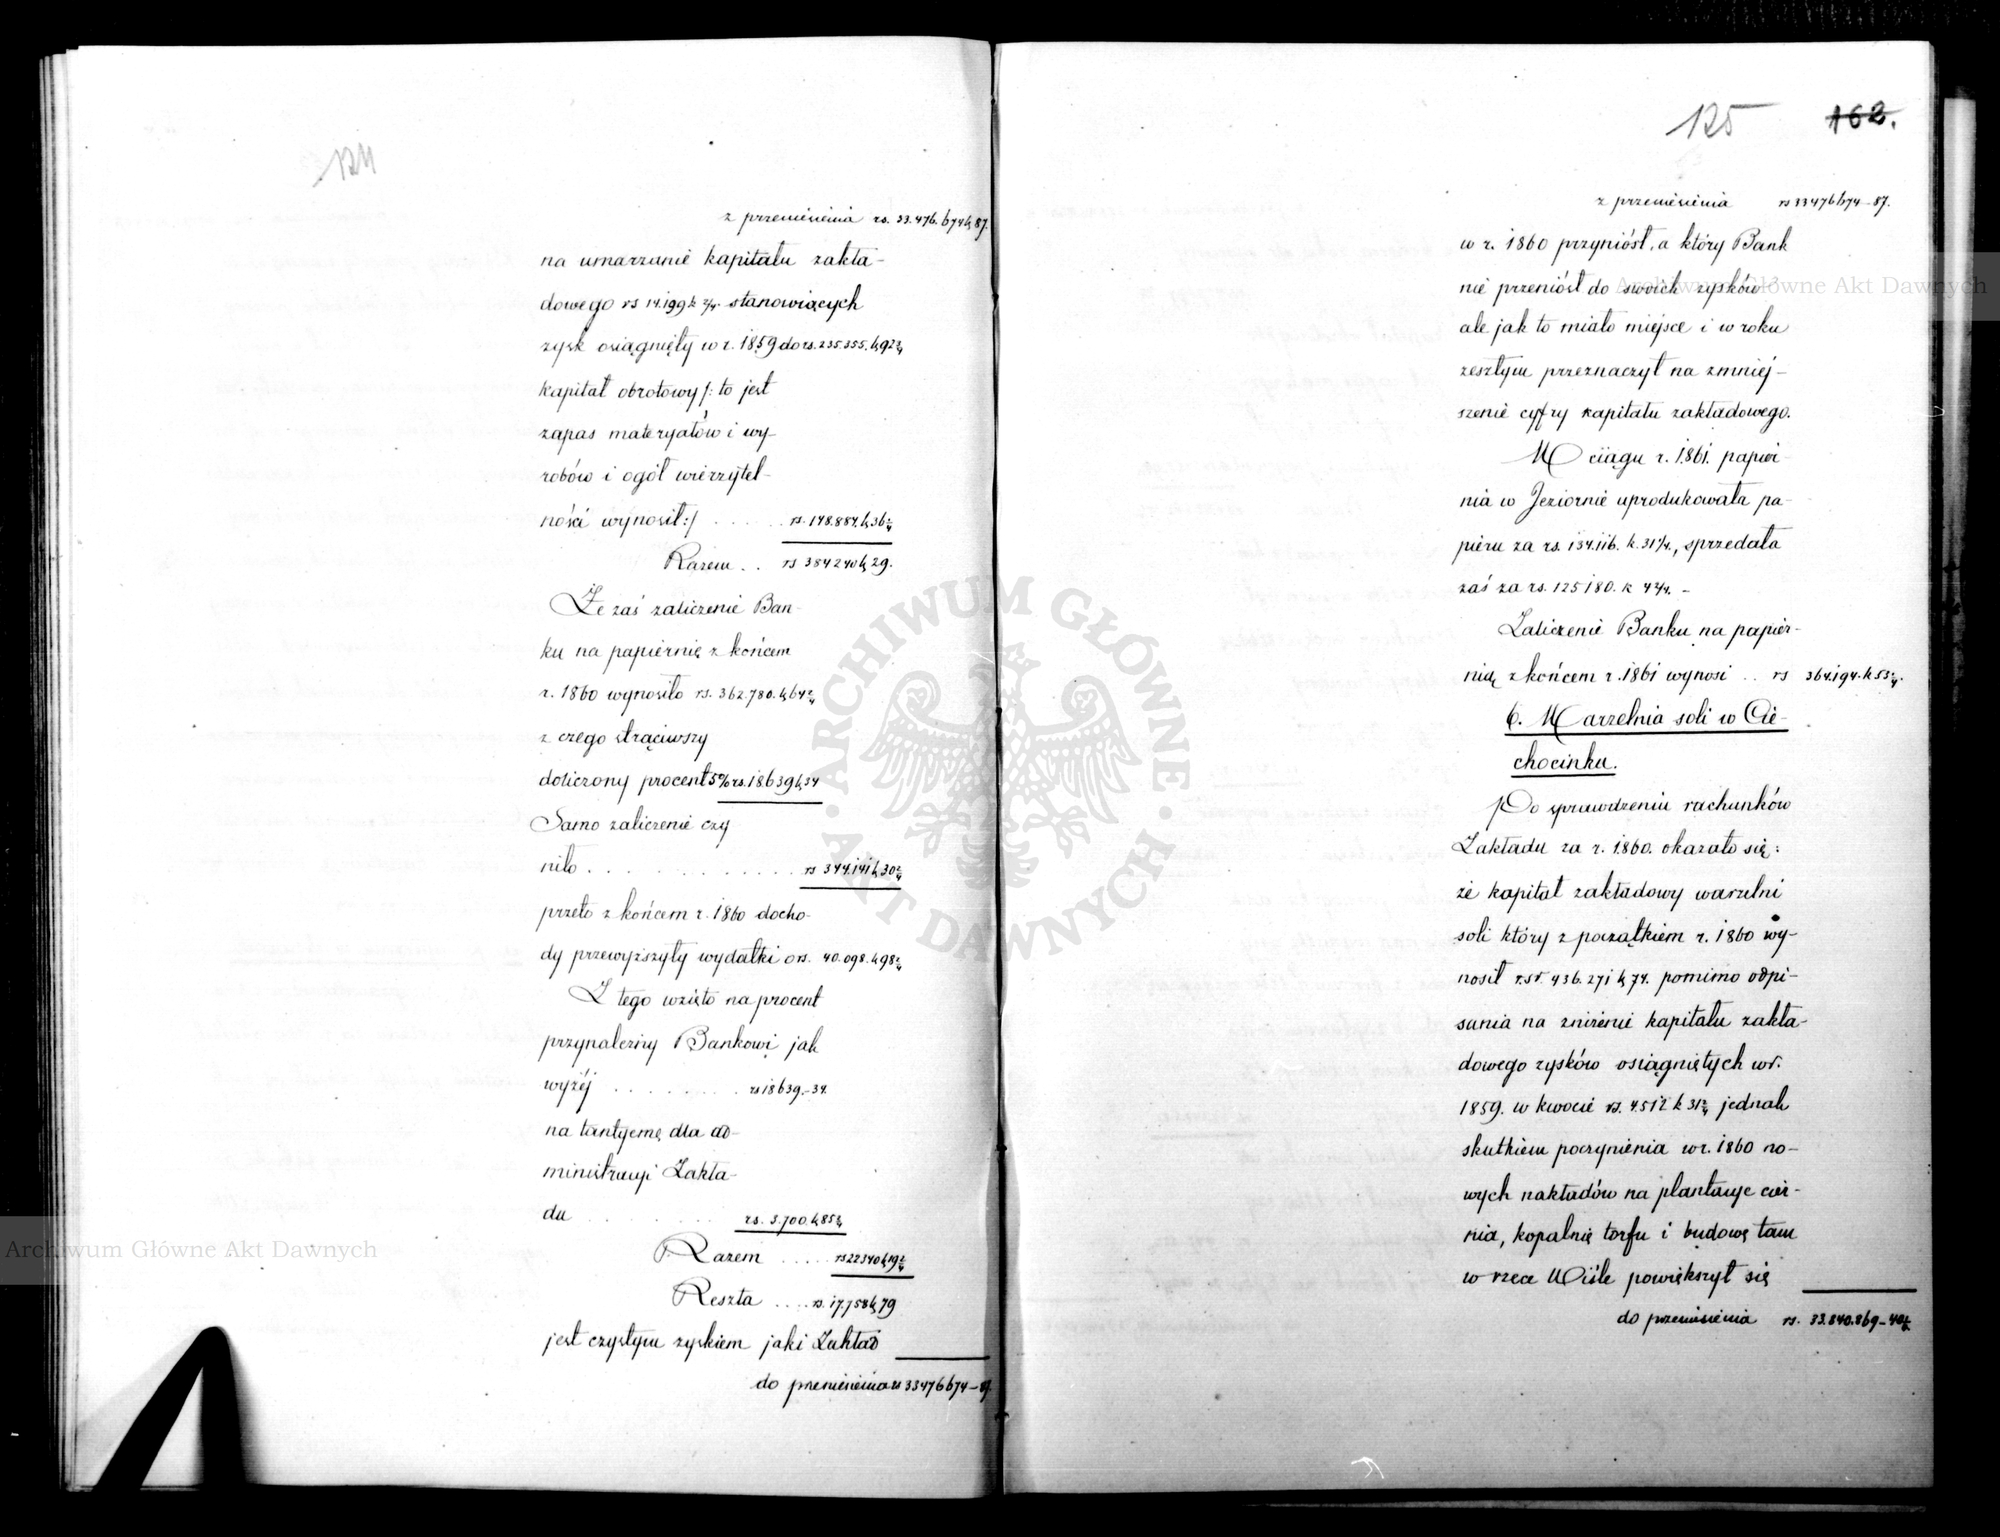 124
z przeniesienia rs. 33.476.674 k 87.
na umarzanie kapitału zakła-
dowego rs 14.199 k 2/4. stanowiących
zysk osiągnięty w r. 1859 do rs. 235.355. k 92 3/4
kapitał obrotowy /: to jest
zapas materyałów i wy-
robów i ogół wierzytel-
ności wynosił :/ . . . . . rs. 148.884. k 36 1/4
Razem . . rs 384240 k 29.
Że zaś zaliczenie Ban-
ku na papiernię z końcem
r. 1860 wynosiło rs. 362.780. k 64 2/4
z czego strąciwszy
doliczony procent 5% rs. 18.639 k 34
Samo zaliczenie czy
niło . . . . . . . . . . . . rs 344.141 k 30 2/4
przeto z końcem r. 1860 docho-
dy przewyższyły wydatki o rs. 40.098. k 98 2/4
Z tego wzięto na procent
przynależny Bankowi jak
wyżéj . . . . . . . . rs 18639.-34.
na tantyemę dla ad-
ministracyi Zakła-
du . . . . . . . . rs. 3.700. k 85 2/4
Razem . . . . . rs 22340 k 19 2/4
Reszta . . . . rs. 17.758 k 79
jest czystym zyskiem jaki Zakład
do przeniesienia rs 33476674-87
125 162.
z przeniesienia rs 33476674-87.
w r. 1860 przyniósł, a który Bank
nie przeniósł do swoich zysków
ale jak to miało miejsce i w roku
zeszłym przeznaczył na zmniej-
szenie cyfry kapitału zakładowego.
W ciągu r. 1861. papier-
nia w Jeziornie uprodukowała pa-
pieru za rs. 134.116. k. 31 1/4., sprzedała
zaś za rs. 125180. k 42/4. -
Zaliczenie Banku na papier-
nią z końcem r. 1861 wynosi . . rs 364.194. k 53 2/4.
6. Warzelnia soli w Cie-
chocinku.
Po sprawdzeniu rachunków
Zakładu za r. 1860. okazało się:
że kapitał zakładowy warzelni
soli który z początkiem r. 1860 wy-
nosił rsr. 436.271 k 74. pomimo odpi-
sania na zniżenie kapitału zakła-
dowego zysków osiągniętych w r.
1859. w kwocie rs. 4.512 k 31 2/4 jednak
skutkiem poczynienia w r. 1860 no-
wych nakładów na plantacye cier-
nia, kopalnię torfu i budowę tam
w rzece Wiśle powiększył się
do przeniesienia rs. 33.840.869-40 2/4
Archiwum Główne Akt Dawnych
Archiwum Główne Akt Dawnych
ARCHIWUM GŁÓWNE AKT DAWNYCH